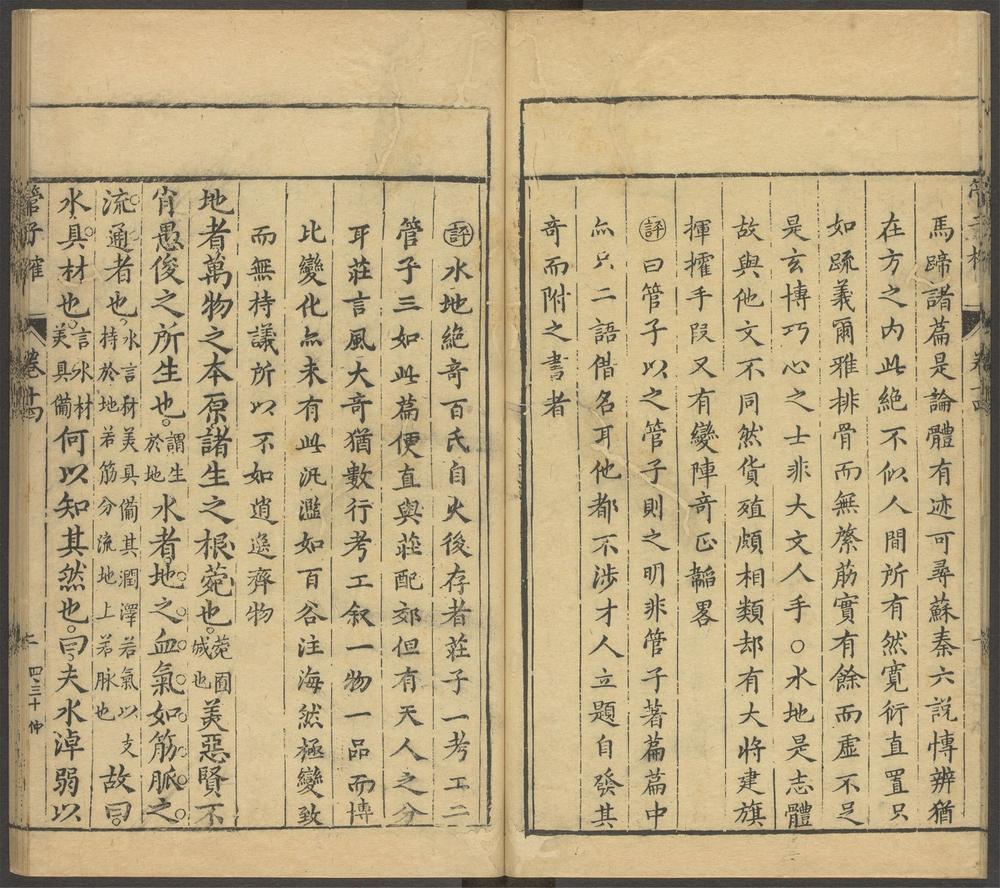 馬蹄諸篇是論體有迹可尋蘇秦六説慱辨猶
在方之内此絶不似人間所有然寛衍直置只
如疏義爾雅排骨而無縈筋實有餘而虛不足
是玄博巧心之士非大文人手○水地是志體
故與他文不同然貨殖頗相類却有大將建旗
揮攉手叚又有變陣奇正韜畧
評曰管子以之管子則之明非管子著篇篇中
亦只二語借名耳他都不涉才人立題自發其
奇而附之書者
評水地絶奇百氏自火後存者莊子一考工二
管子三如此篇便直與莊配郊但有天人之分
耳莊言風大奇猶數行考工叙一物一品而博
比變化亦未有此汎濫如百谷注海然極變致
而無持議所以不如逍遥齊物
地者萬物之本原諸生之根菀也菀囿城也美惡賢不
肖愚俊之所生也謂生於地水者地之血氣如筋脈之
流通者也水言材美具備其潤澤若氣以支持於地若筋分流地上若脉也故曰
水具材也言水材美具備何以知其然也曰夫水淖弱以
管子榷
卷十四
七
四三十
仲